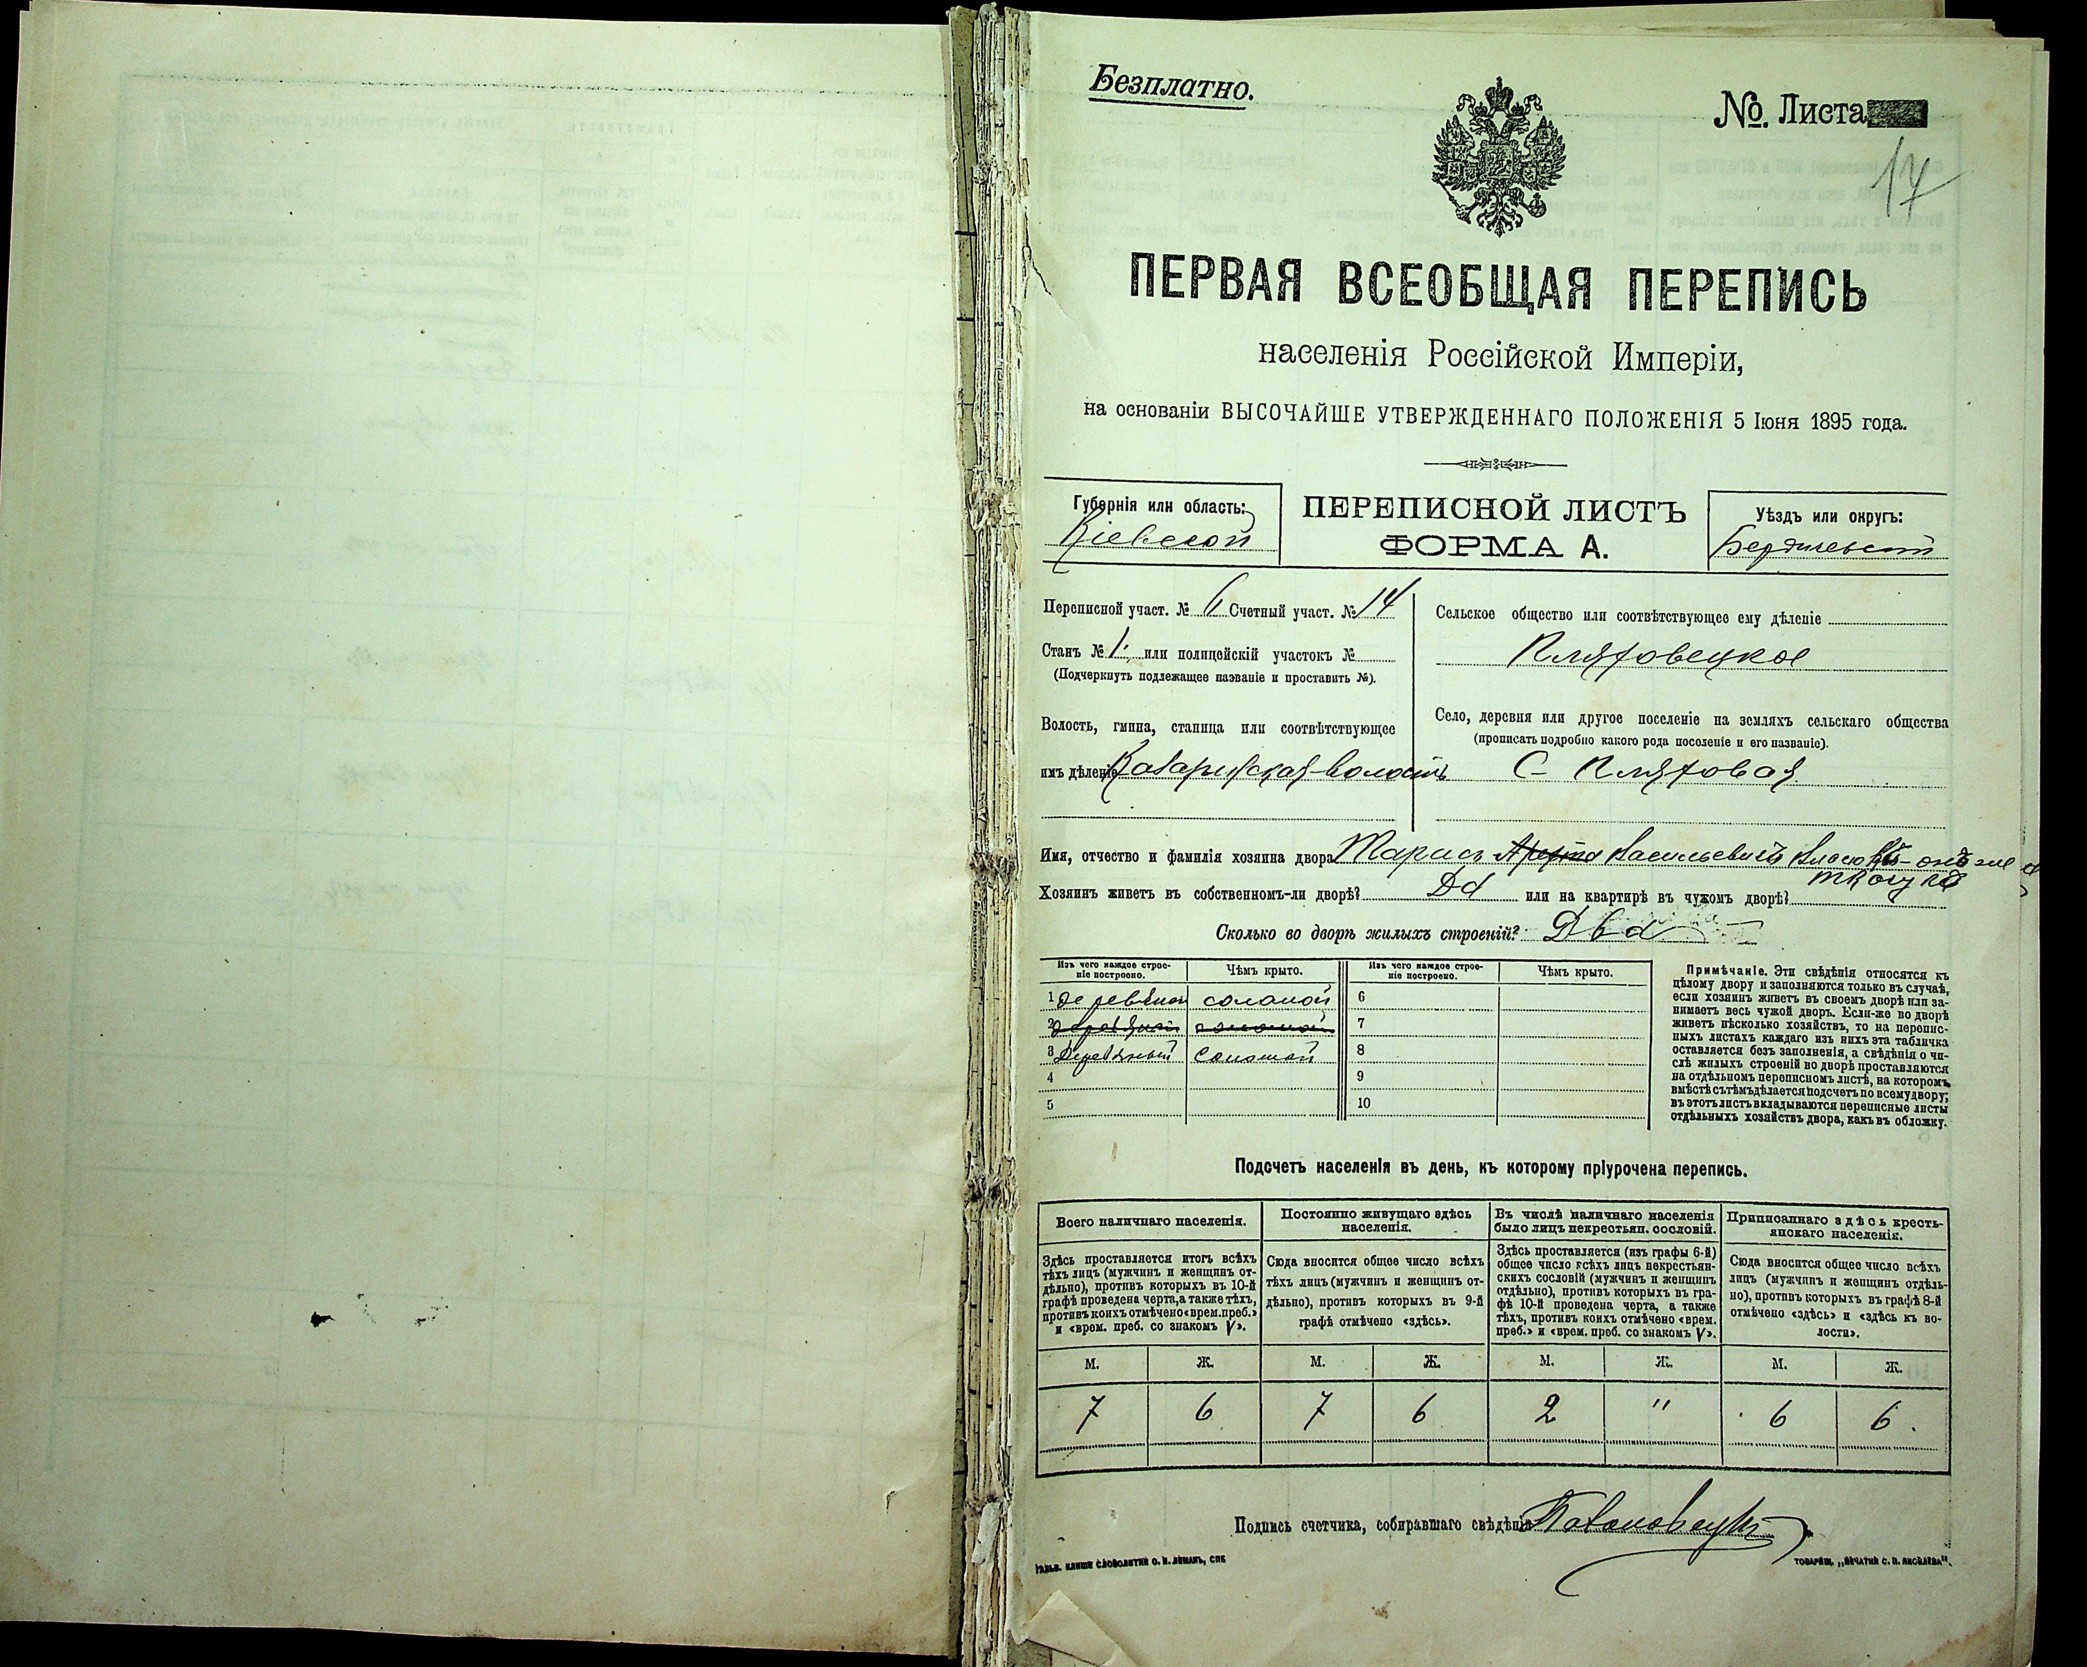 Безплатно.
№. Листа
17
ПЕРВАЯ ВСЕОБЩАЯ ПЕРЕПИСЬ
населенія Россійской Имперіи,
на основаніи ВЫСОЧАЙШЕ УТВЕРЖДЕННАГО ПОЛОЖЕНІЯ 5 Іюня 1895 года.
Губернія или область:
Кіевской
ПЕРЕПИСНОЙ ЛИСТЪ
ФОРМА А.
Уѣздъ или округъ:
Бердичевскій
Переписной участ. № 6 Счетный участ. № 14
Станъ № 1. или полицейскій участокъ №
(Подчеркнуть подлежащее названіе и проставить №).
Волость, гмина, станица или соотвѣтствующее
имъ дѣленіе волость
Сельское общество или соотвѣтствующее ему дѣленіе
Пляховецкое
Село, деревня или другое поселеніе на земляхъ сельскаго общества
(прописать подробно какого рода поселеніе и его названіе).
С- Пляховая
Имя, отчество и фамилія хозяина двора Тарасъ Васильевичъ онъ же
Хозяинъ живетъ въ собственномъ-ли дворѣ? Да или на квартирѣ въ чужомъ дворѣ?
Сколько во дворѣ жилыхъ строеній? Два
Изъ чего каждое строе-
ніе построено.
Чѣмъ крыто.
Изъ чего каждое строе-
ніе построено.
Чѣмъ крыто.
1 соломой 6
2 7
3 Деревяный соломой 8
4 9
5 10
Примѣчаніе. Эти свѣдѣнія относятся къ
цѣлому двору и заполняются только въ случаѣ,
если хозяинъ живетъ въ своемъ дворѣ или за-
нимаетъ весь чужой дворъ. Если-же во дворѣ
живетъ нѣсколько хозяйствъ, то на перепис-
ныхъ листахъ каждаго изъ нихъ эта табличка
оставляется безъ заполненія, а свѣдѣнія о чи-
слѣ жилыхъ строеній во дворѣ проставляются
на отдѣльномъ переписномъ листѣ, на которомъ
вмѣстѣ съ тѣмъ дѣлается подсчетъ по всему двору;
въ этотъ листъ вкладываются переписные листы
отдѣльныхъ хозяйствъ двора, какъ въ обложку.
Подсчетъ населенія въ день, къ которому пріурочена перепись.
Всего наличнаго населенія.
Здѣсь проставляется итогъ всѣхъ
тѣхъ лицъ (мужчинъ и женщинъ от-
дѣльно), противъ которыхъ въ 10-й
графѣ проведена черта, а также тѣхъ,
противъ коихъ отмѣчено «врем. преб.»
и «врем. преб. со знакомъ V».
Постоянно живущаго здѣсь
населенія.
Сюда вносится общее число всѣхъ
тѣхъ лицъ (мужчинъ и женщинъ от-
дѣльно), противъ которыхъ въ 9-й
графѣ отмѣчено «здѣсь».
Въ числѣ наличнаго населенія
было лицъ некрестьян. сословій.
Здѣсь проставляется (изъ графы 6-й)
общее число всѣхъ лицъ некрестьян-
скихъ сословій (мужчинъ и женщинъ
отдѣльно), противъ которыхъ въ гра-
фѣ 10-й проведена черта, а также
тѣхъ, противъ коихъ отмѣчено «врем.
преб.» и «врем. преб. со знакомъ V».
Приписаннаго здѣсь кресть-
янскаго населенія.
Сюда вносится общее число всѣхъ
лицъ (мужчинъ и женщинъ отдѣль-
но), противъ которыхъ въ графѣ 8-й
отмѣчено «здѣсь» и «здѣсь къ во-
лости».
М. Ж. М. Ж. М. Ж. М. Ж.
7 6 7 6 2 " 6 6.
Подпись счетчика, собиравшаго свѣдѣнія
ГАЛЬВ. КЛИШЕ СЛОВОЛИТНИ О. И. ЛЕМАНЪ, СПБ
ТОВАРИЩ. „ПЕЧАТНЯ С. П. ЯКОВЛЕВА".